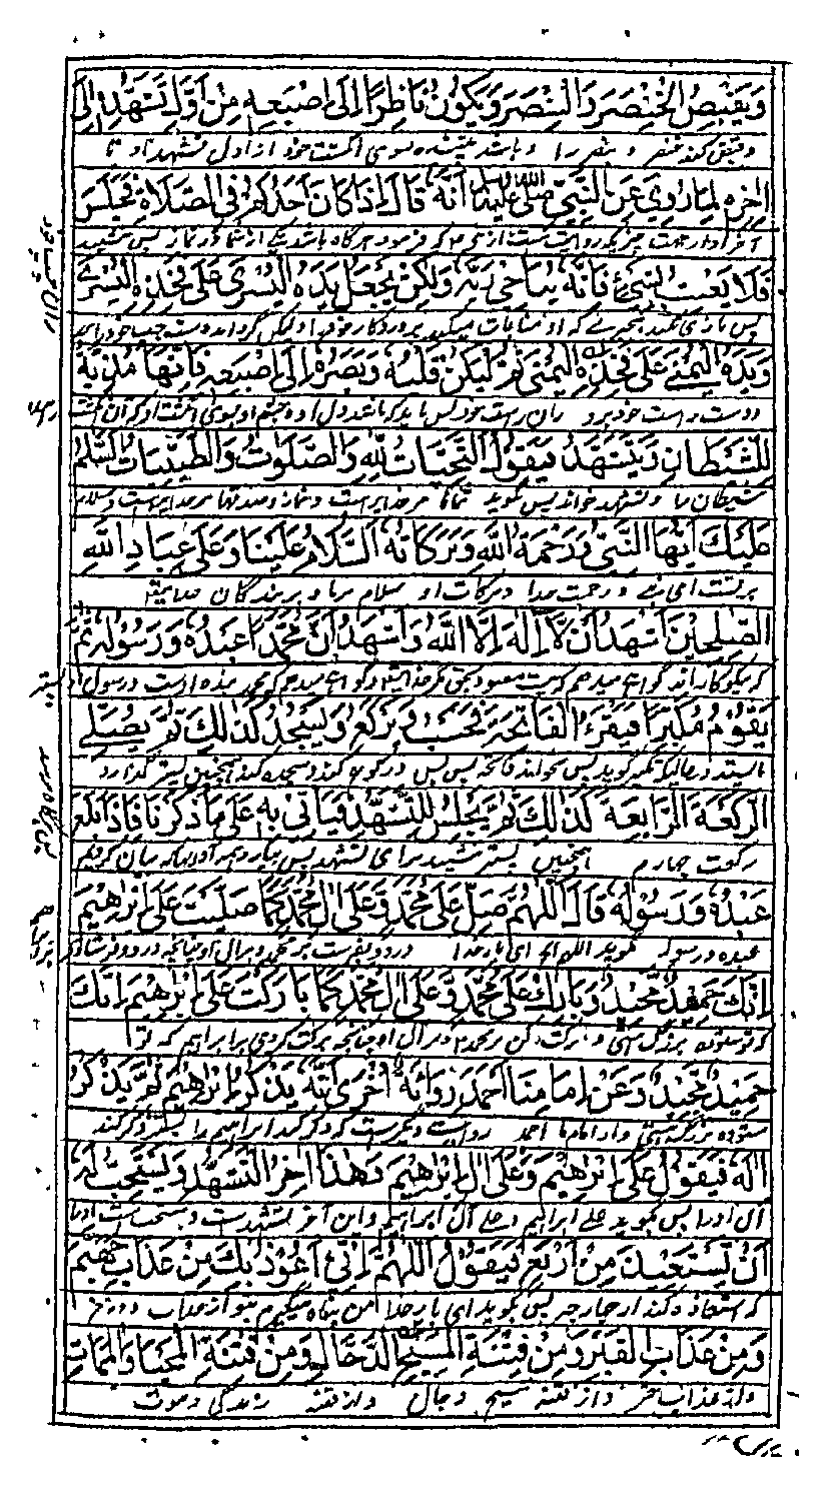 وَيَقْبِضُ الْخِنْصِرَ وَالْبِنْصِرَ وَيَكُوْنُ نَاظِرًا اِلٰى اِصْبَعِهِ مِنْ اَوَّلِ تَشَهُّدِ اِلٰى
وقبض کند خنصر و بنصر را و باشد بیننده بسوی انگشت خود از اول تشهد او تا
اٰخِرِهٖ لِمَا رُوِيَ عَنِ النَّبِيِّ صَلَّى اللّٰهُ عَلَيْهِ اَنَّهٗ قَالَ اِذَا كَانَ اَحَدُكُمْ فِي الصَّلَاةِ فَجَلَسَ
آخر او از جهت چیزیکه روایت ست از نبی که فرمود هرگاه باشد یکے از شما در نماز پس بنشیند
فَلَا يَعْبَثُ بِشَيْءٍ فَاِنَّهٗ يُنَاجِيْ رَبَّهٗ وَلٰكِنْ يَجْعَلُ يَدَهُ الْيُسْرٰى عَلٰى فَخِذِهِ الْيُسْرٰى
پس بازی نکند بچیزے که او مناجات میکند پروردگار خود را ولیکن گرداند دست چپ خود را بر
وَيَدَهُ الْيُمْنٰى عَلٰى فَخِذِهِ الْيُمْنٰى ثُمَّ لْيَكُنْ قَلْبُهٗ وَبَصَرُهٗ اِلٰى اِصْبَعِهٖ فَاِنَّهَا مُذِبَّةٌ
ودست راست خود بر ران راست خود پس باید که باشد دل او و چشم او بسوی انگشت او که آن
لِلشَّيْطَانِ وَيَتَشَهَّدُ فَيَقُوْلُ التَّحِيَّاتُ لِلّٰهِ وَالصَّلَوٰتُ وَالطَّيِّبَاتُ السَّلَامُ
شیطان را و تشهد خواند پس گوید
عَلَيْكَ اَيُّهَا النَّبِيُّ وَرَحْمَةُ اللّٰهِ وَبَرَكَاتُهٗ اَلسَّلَامُ عَلَيْنَا وَعَلٰى عِبَادِ اللّٰهِ
بر تست ای نبی و رحمت خدا و برکات او سلام بر ما و بر بندگان خدای
الصّٰلِحِيْنَ اَشْهَدُ اَنْ لَّا اِلٰهَ اِلَّا اللّٰهُ وَاَشْهَدُ اَنَّ مُحَمَّدًا عَبْدُهٗ وَرَسُوْلُهٗ ثُمَّ
که نیکوکار اند گواهی میدهم که نیست معبود بحق مگر خدا و گواهی میدهم که محمد بنده اوست و رسول او
يَقُوْمُ مُكَبِّرًا فَيَقْرَءُ الْفَاتِحَةَ فَحَسْبُ وَيَرْكَعُ وَيَسْجُدُ كَذٰلِكَ ثُمَّ يُصَلِّيْ
بایستد در حالیکه تکبیر گوید پس بخواند فاتحه پس بس و رکوع کند و سجده کند همچنین پستر گذارد
الرَّكْعَةَ الرَّابِعَةَ كَذٰلِكَ ثُمَّ يَجْلِسُ لِلتَّشَهُّدِ فَيَاْتِيْ بِهٖ عَلٰى مَا ذَكَرْنَا فَاِذَا بَلَغَ
رکعت چهارم همچنین پستر بنشیند برای تشهد پس بیارد
عَبْدُهٗ وَرَسُوْلُهٗ قَالَ اَللّٰهُمَّ صَلِّ عَلٰى مُحَمَّدٍ وَّعَلٰى اٰلِ مُحَمَّدٍ كَمَا صَلَّيْتَ عَلٰى اِبْرٰهِيْمَ
عبده ورسوله گوید اللهم ای بار خدا درود بفرست بر محمد و بر آل او چنانچه درود فرستادی
اِنَّكَ حَمِيْدٌ مَّجِيْدٌ وَبَارِكْ عَلٰى مُحَمَّدٍ وَّعَلٰى اٰلِ مُحَمَّدٍ كَمَا بَارَكْتَ عَلٰى اِبْرٰهِيْمَ اِنَّكَ
که تو ستوده بزرگ هستی و برکت کن بر محمد و بر آل او چنانچه برکت کردی بر ابراهیم که تو
حَمِيْدٌ مَّجِيْدٌ وَعَنْ اِمَامِنَا اَحْمَدَ رِوَايَةٌ اُخْرٰى اَنَّهٗ يَذْكُرُ اِبْرٰهِيْمَ ثُمَّ يَذْكُرُ
ستوده بزرگ هستی و از امام ما احمد روایت دیگرست که ذکر کند ابراهیم را پستر ذکر کند
اٰلَهٗ فَيَقُوْلُ عَلٰى اِبْرٰهِيْمَ وَعَلٰى اٰلِ اِبْرٰهِيْمَ وَهٰذَا اٰخِرُ التَّشَهُّدِ وَيُسْتَحَبُّ لَهٗ
آل او را پس بگوید علے ابراهیم و علے آل ابراهیم و این آخر تشهد ست و مستحب ست او را
اَنْ يَّسْتَعِيْذَ مِنْ اَرْبَعٍ فَيَقُوْلُ اَللّٰهُمَّ اِنِّيْ اَعُوْذُ بِكَ مِنْ عَذَابِ جَهَنَّمَ
که استعاذه کند از چار چیز پس بگوید ای بار خدا من پناه میگیرم بتو از عذاب دوزخ
وَمِنْ عَذَابِ الْقَبْرِ وَمِنْ فِتْنَةِ الْمَسِيْحِ الدَّجَّالِ وَمِنْ فِتْنَةِ الْمَحْيَا وَالْمَمَاتِ
واز عذاب قبر واز فتنه مسیح دجال واز فتنه زندگی و موت